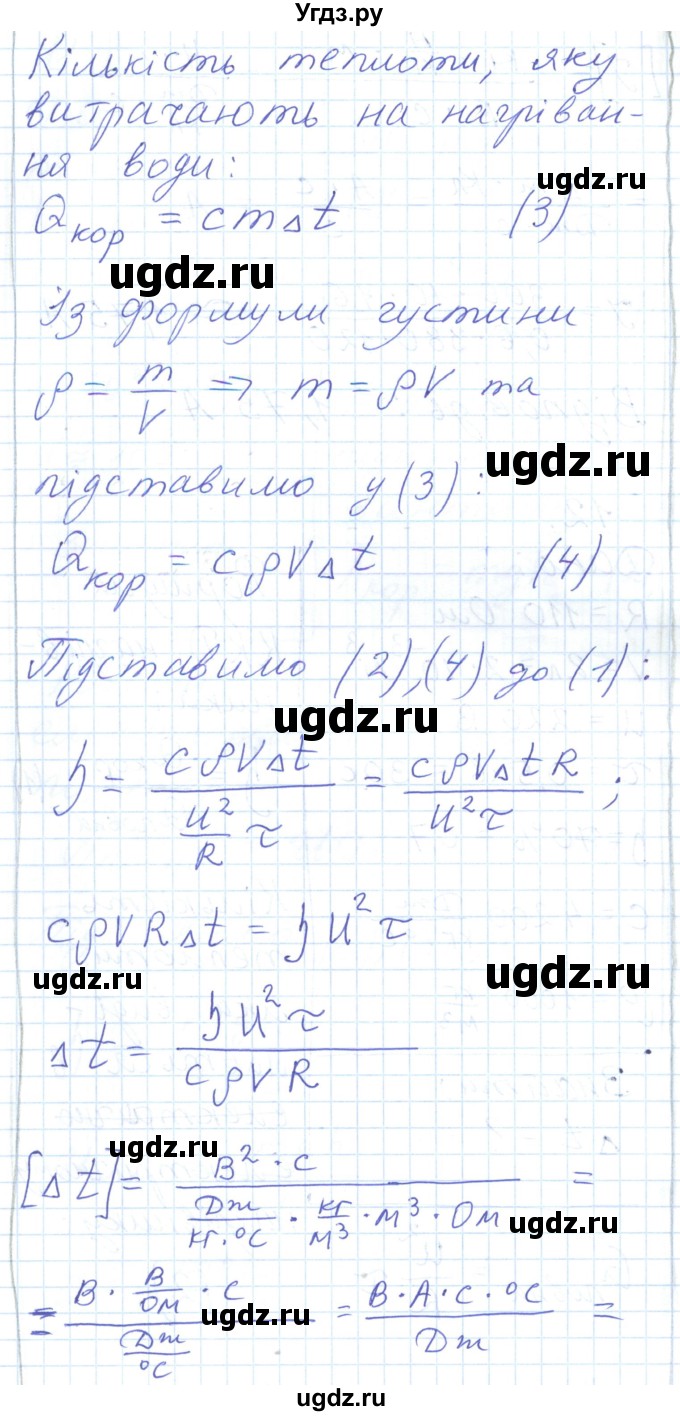 Угдз.ру
Кількість теплоти, яку
витрачають на нагріван-
ня води:
ugdz.ru
Qкор = cmΔt (3)
ugdz.ru
Із формули густини
ρ = m/V ⇒ m = ρV та
ugdz.ru
підставимо у (3):
Qкор = cρVΔt (4)
Підставимо (2),(4) до (1):
ugdz.ru
η = cρVΔt / (U²/R τ) = cρVΔtR / U²τ ;
cρVRΔt = ηU²τ
ugdz.ru
ugdz.ru
Δt = ηU²τ / cρVR
ugdz.ru
[Δt] = В²·с / (Дж/кг·°С · кг/м³ · м³ · Ом) =
ugdz.ru
= В · В/Ом · с / (Дж/°С) = В·А·с·°С / Дж =
ugdz.ru
ugdz.ru